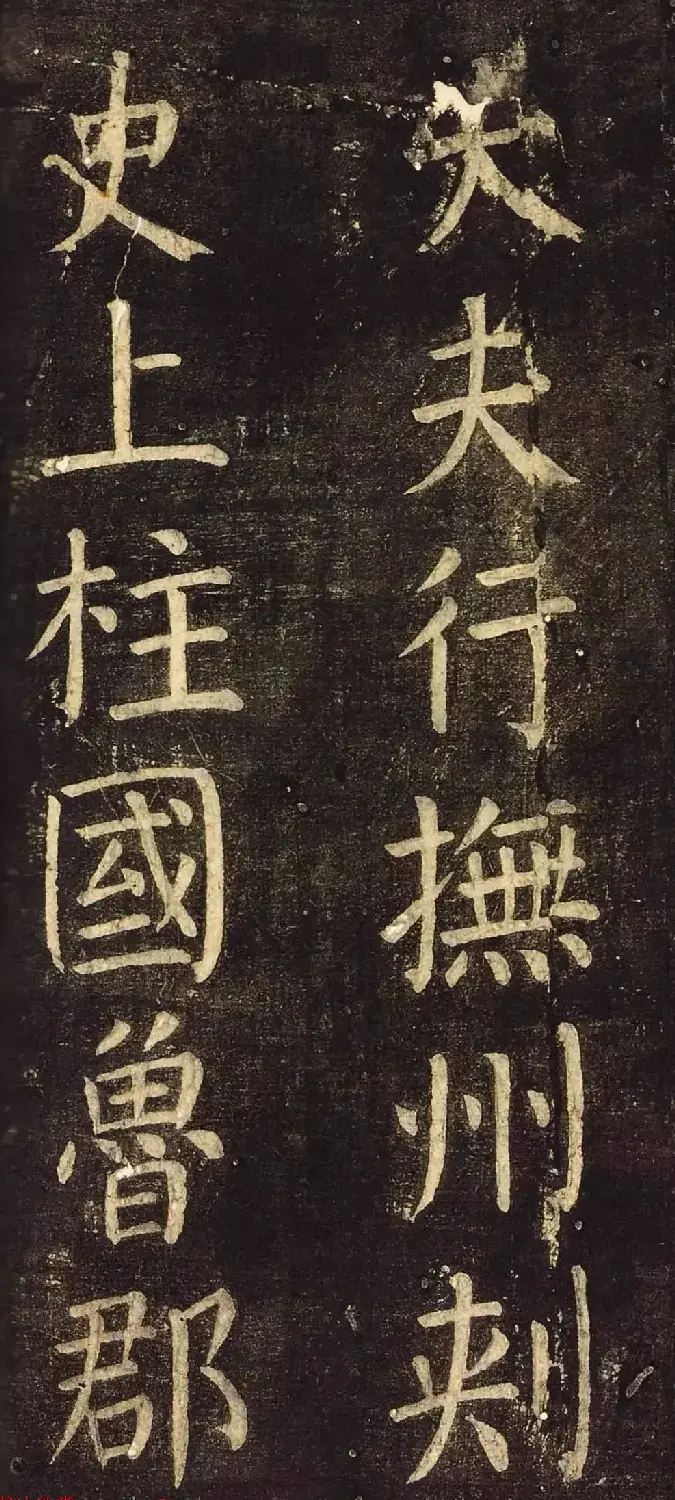 大夫行撫州刾
史上柱國魯郡